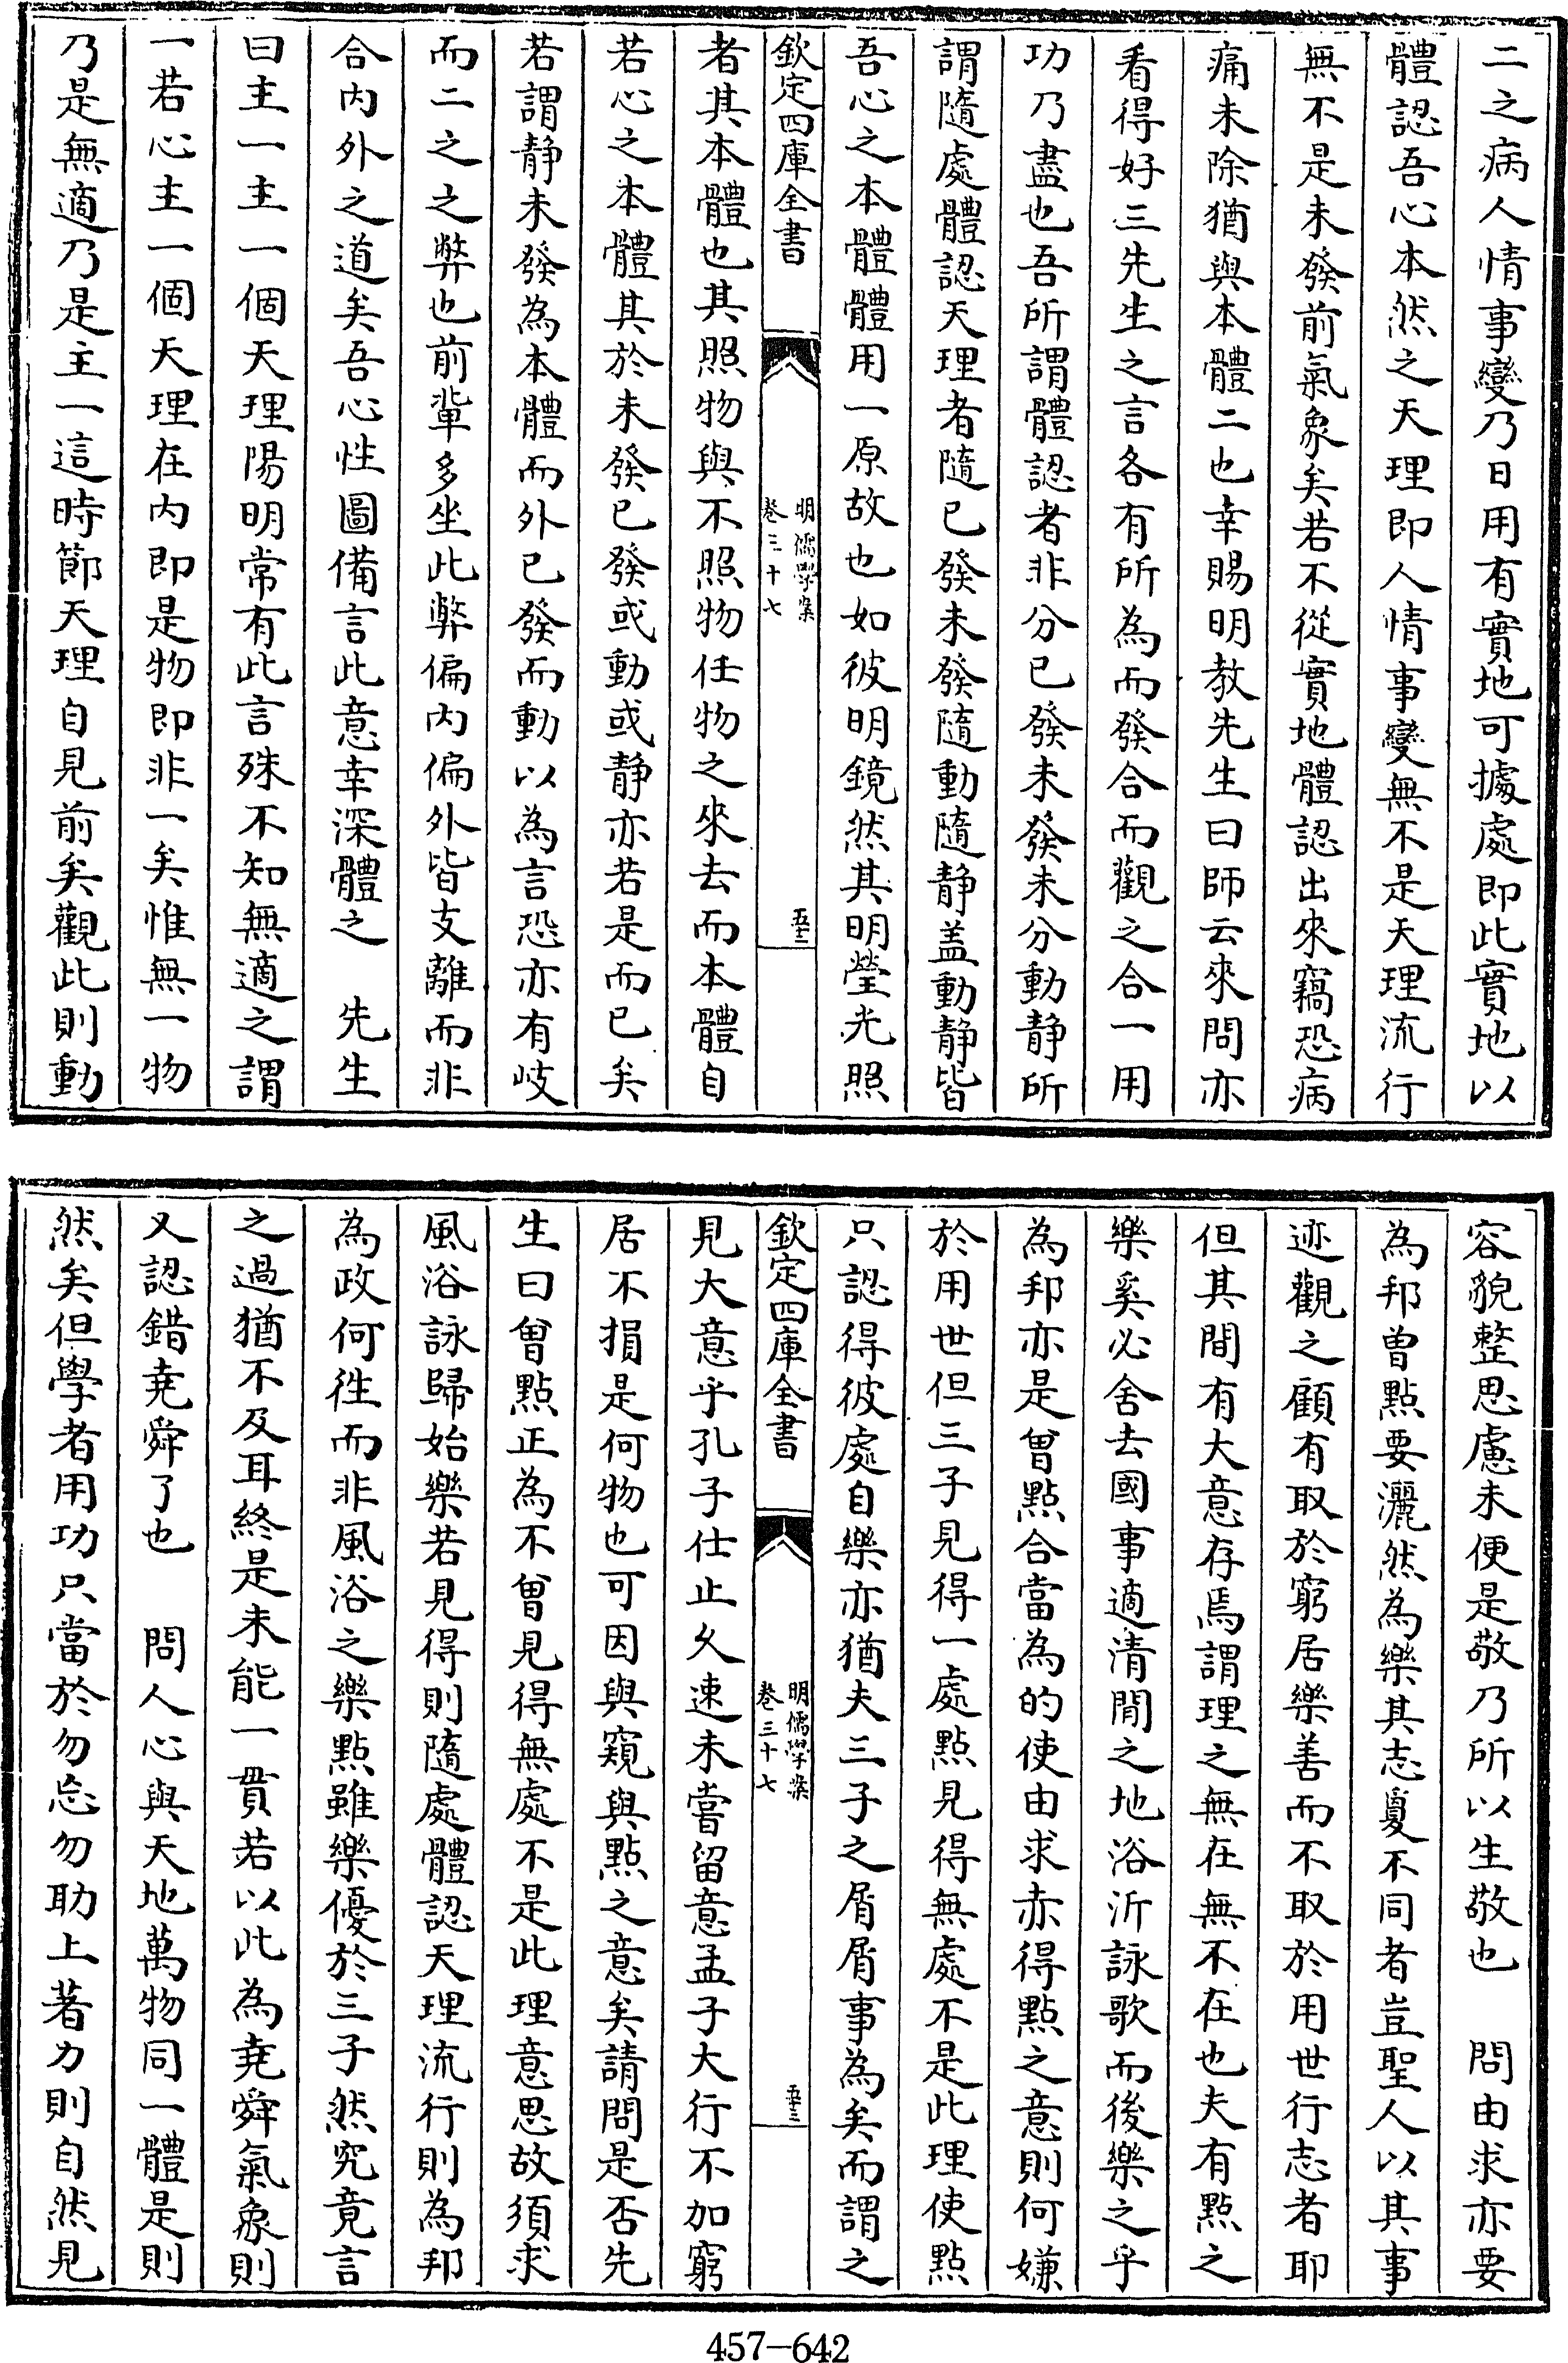 二之病人情事變乃日用有實地可據處即此實地以
體認吾心本然之天理即人情事變無不是天理流行
無不是未發前氣象矣若不從實地體認出來竊恐病
痛未除猶與本體二也幸賜明教先生曰師云來問亦
看得好三先生之言各有所為而發合而觀之合一用
功乃盡也吾所謂體認者非分已發未發未分動靜所
謂隨處體認天理者隨已發未發隨動隨靜盖動靜皆
吾心之本體體用一原故也如彼明鏡然其明瑩光照
欽定四庫全書
明儒學案
卷三十七
五十二
者其本體也其照物與不照物任物之來去而本體自
若心之本體其於未發已發或動或靜亦若是而已矣
若謂靜未發為本體而外已發而動以為言恐亦有岐
而二之之弊也前輩多坐此弊偏內偏外皆支離而非
合內外之道矣吾心性圖備言此意幸深體之　先生
曰主一主一個天理陽明常有此言殊不知無適之謂
一若心主一個天理在內即是物即非一矣惟無一物
乃是無適乃是主一這時節天理自見前矣觀此則動
容貌整思慮未便是敬乃所以生敬也　問由求亦要
為邦曾點要灑然為樂其志夐不同者豈聖人以其事
迹觀之顧有取於窮居樂善而不取於用世行志者耶
但其間有大意存焉謂理之無在無不在也夫有點之
樂奚必舍去國事適清閒之地浴沂詠歌而後樂之乎
為邦亦是曾點合當為的使由求赤得點之意則何嫌
於用世但三子見得一處點見得無處不是此理使點
只認得彼處自樂亦猶夫三子之屑屑事為矣而謂之
欽定四庫全書
明儒學案
卷三十七
五十三
見大意乎孔子仕止久速未嘗留意孟子大行不加窮
居不損是何物也可因與窺與點之意矣請問是否先
生曰曾點正為不曾見得無處不是此理意思故須求
風浴詠歸始樂若見得則隨處體認天理流行則為邦
為政何徃而非風浴之樂點雖樂優於三子然究竟言
之過猶不及耳終是未能一貫若以此為堯舜氣象則
又認錯堯舜了也　問人心與天地萬物同一體是則
然矣但學者用功只當於勿忘勿助上著力則自然見
457—642